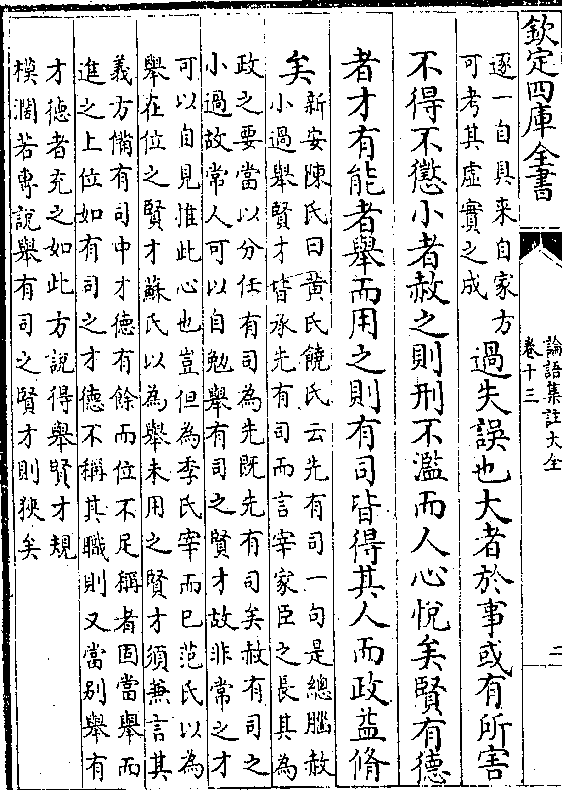 欽定四庫全書
論語集註大全
卷十三
二
逐一自具来自家方
可考其虚實之成
過失誤也大者於事或有所害
不得不懲小者赦之則刑不濫而人心悦矣賢有德
者才有能者舉而用之則有司皆得其人而政益脩
矣
新安陳氏曰黄氏饒氏云先有司一句是總腦赦
小過舉賢才皆承先有司而言宰家臣之長其為
政之要當以分任有司為先既先有司矣赦有司之
小過故常人可以自勉舉有司之賢才故非常之才
可以自見惟此心也豈但為季氏宰而已范氏以為
舉在位之賢才蘇氏以為舉未用之賢才須兼言其
義方備有司中才德有餘而位不足稱者固當舉而
進之上位如有司之才德不稱其職則又當别舉有
才德者充之如此方說得舉賢才規
模濶若專說舉有司之賢才則狹矣